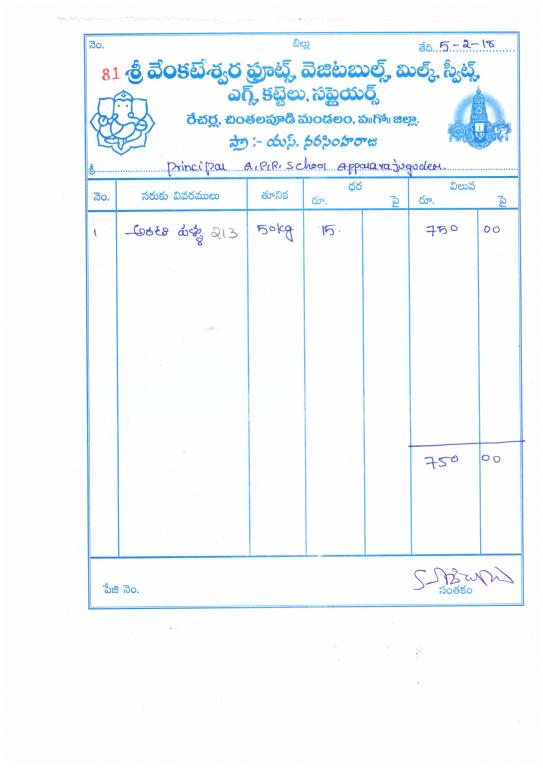 నెం. బిల్లు తేది 5-2-18
81 శ్రీ వేంకటేశ్వర ఫ్రూట్స్, వెజిటబుల్స్, మిల్క్, స్వీట్స్,
ఎగ్స్, కట్టెలు, సప్లైయర్స్
రేచర్ల, చింతలపూడి మండలం, ప॥గో॥ జిల్లా.
ప్రొ :- యస్. నరసింహరాజు
శ్రీ Principal A.P.R. School Apparajugudem.
నెం. సరుకు వివరములు తూనిక ధర విలువ
రూ. పై రూ. పై
1 అరటి పళ్ళు 213 50kg 15. 750 00
750 00
పేజి నెం. సంతకం